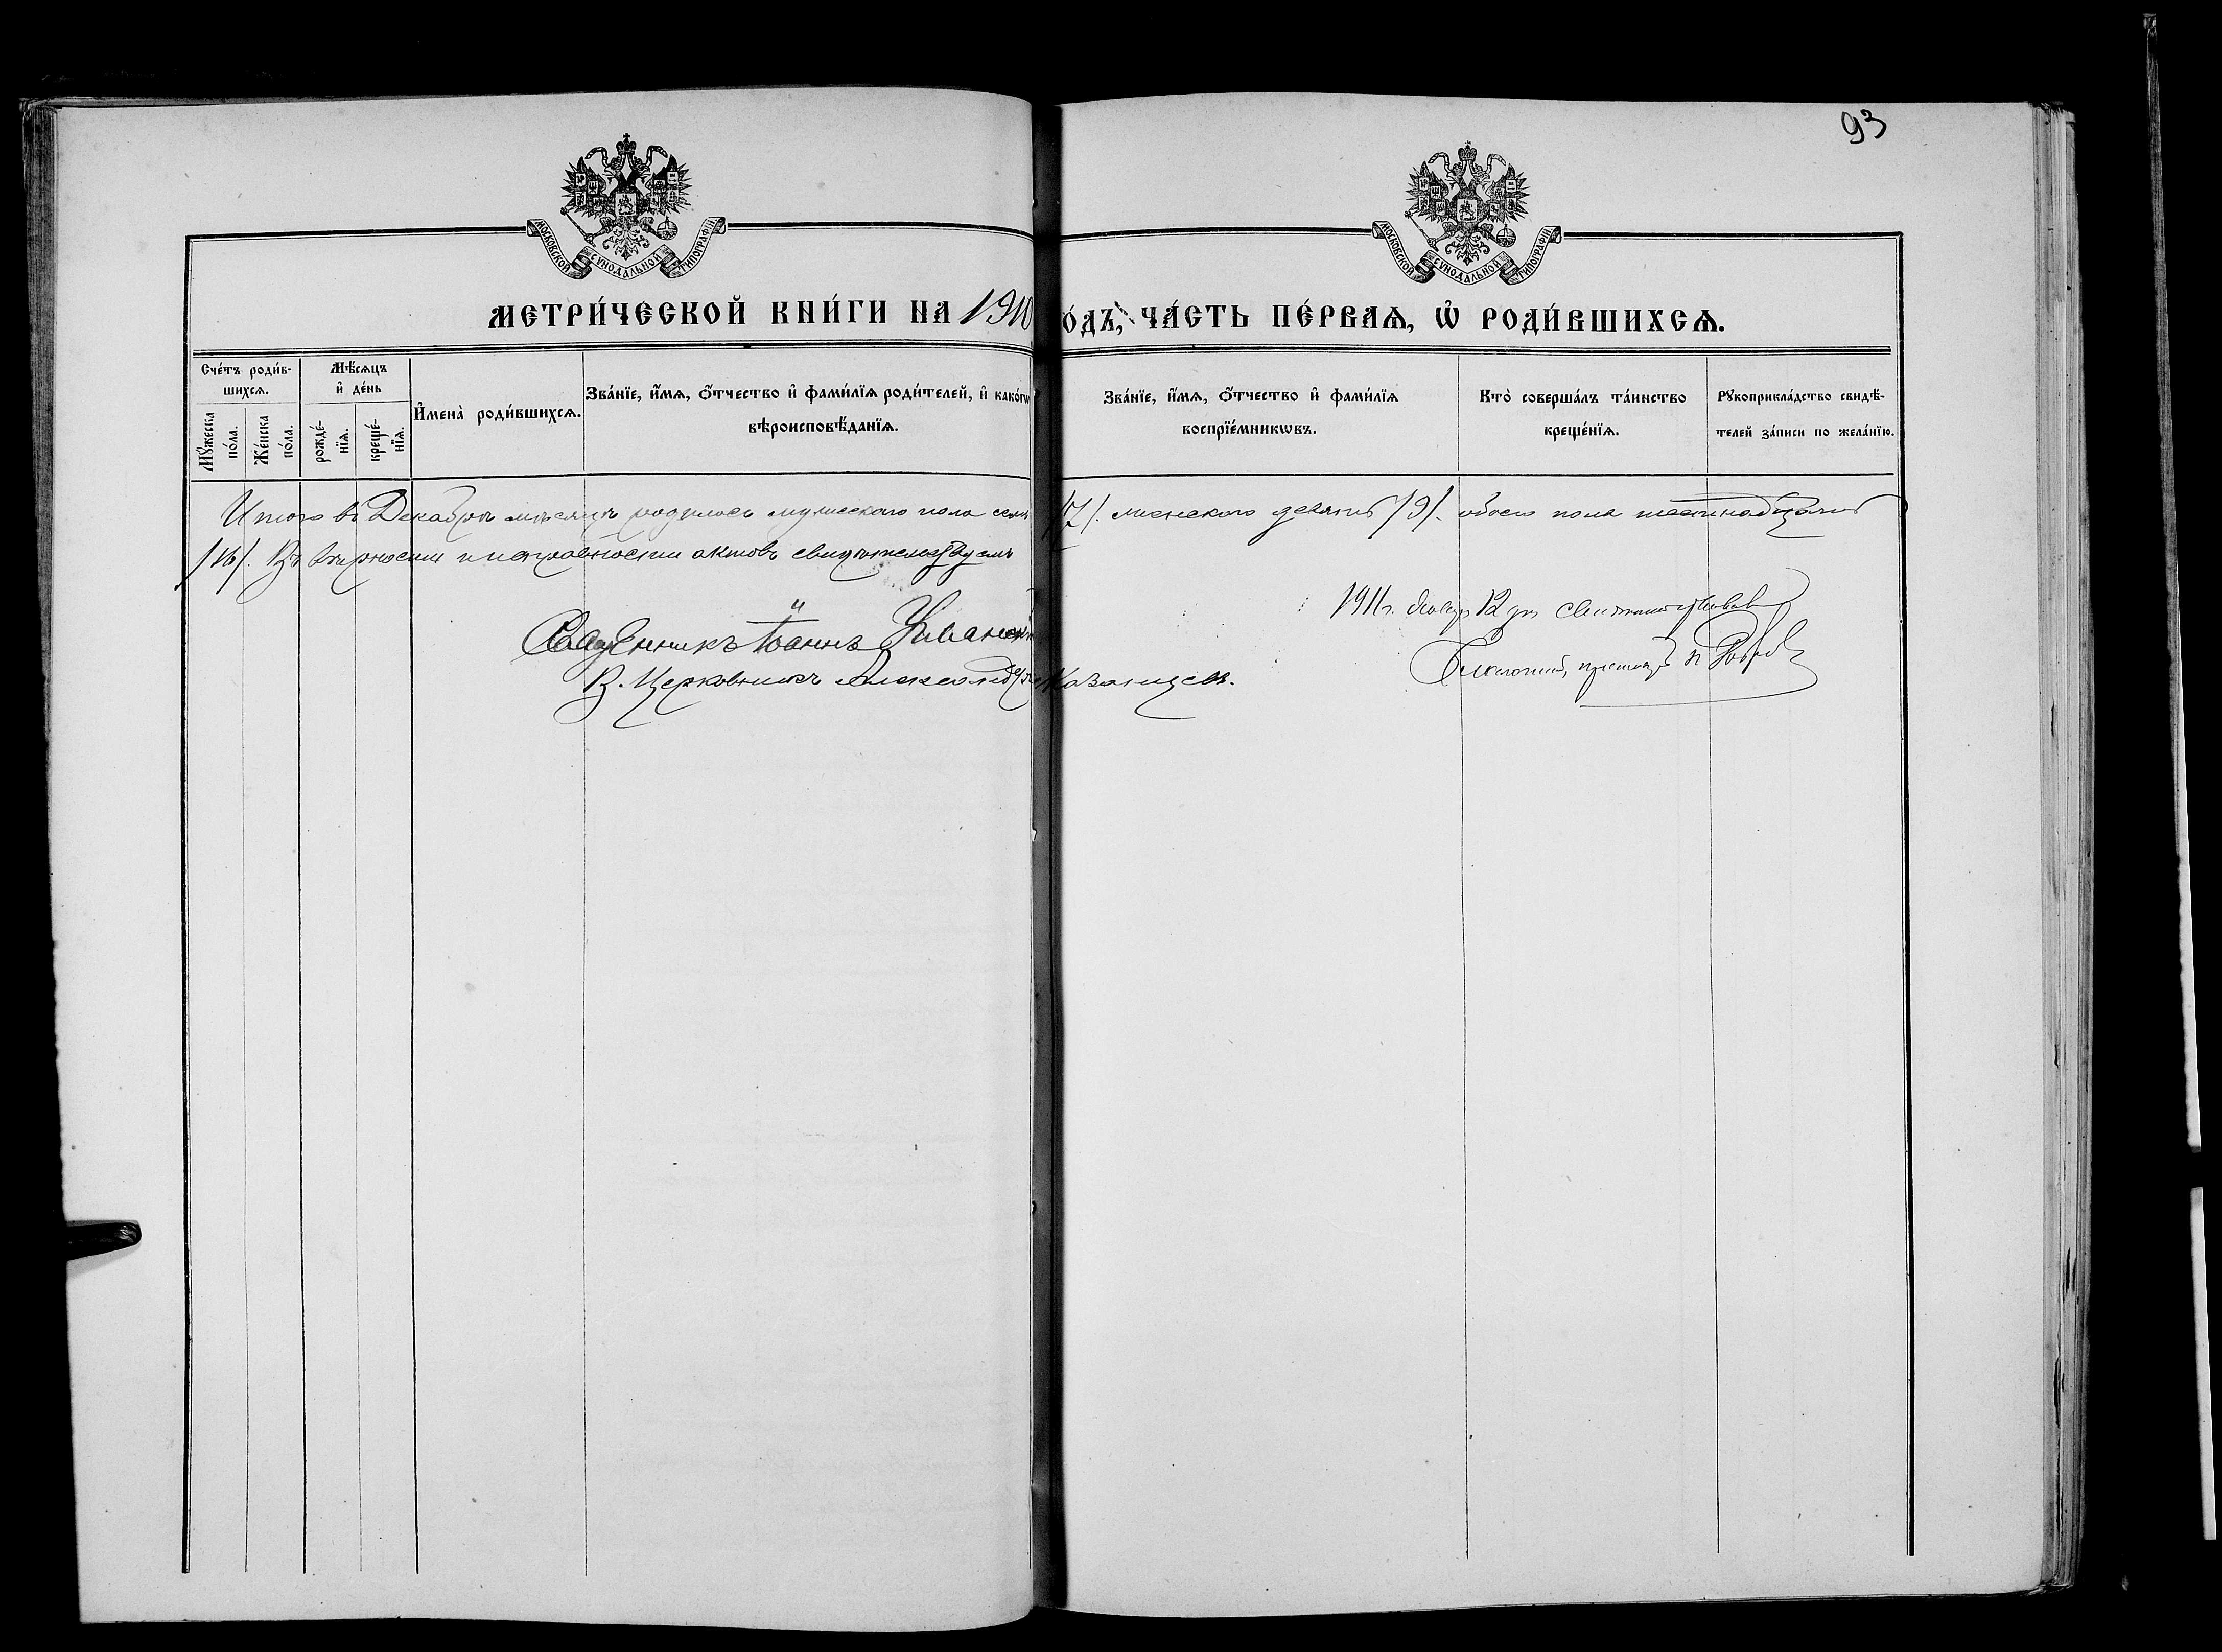 93
МОСКОВСКОЙ СѴНОДАЛЬНОЙ ТИПОГРАФІИ
МОСКОВСКОЙ СѴНОДАЛЬНОЙ ТИПОГРАФІИ
МЕТРИ́ЧЕСКОЙ КНИ́ГИ НА 1910 О́ДЪ, ЧА́СТЬ ПЕ́РВАЯ, Ѡ РОДИ́ВШИХСЯ.
Сче́тъ роди́в-
шихся.
Мꙋ́жеска
по́ла.
Же́нска
по́ла.
Мѣ́сяцъ
и҆ де́нь
рожде́-
нїя.
креще́-
нїя.
И҆мена̀ роди́вшихся.
Зва́нїе, и҆́мя, ѻ҆́тчество и҆ фами́лїя роди́телей, и҆ како́гѡ
вѣроисповѣ́данїя.
Зва́нїе, и҆́мя, ѻ҆́тчество и҆ фами́лїя
воспрїе́мникѡвъ.
Кто̀ соверша́лъ та́инство
креще́нїя.
Рꙋкоприкла́дство свидѣ́-
телей за́писи по жела́нїю.
Итого въ Декабрѣ мѣсяцѣ родилось мужескаго пола семь /7/. женскаго девять /9/. обоего пола шестнадцать
/16/. Въ вѣрности и исправности актовъ свидѣтельствуемъ
Священникъ Іоаннъ
В. Церковникъ Александръ Казанцевъ.
1911 г. Января 12 дн свидѣтельствовалъ
Благочинный,